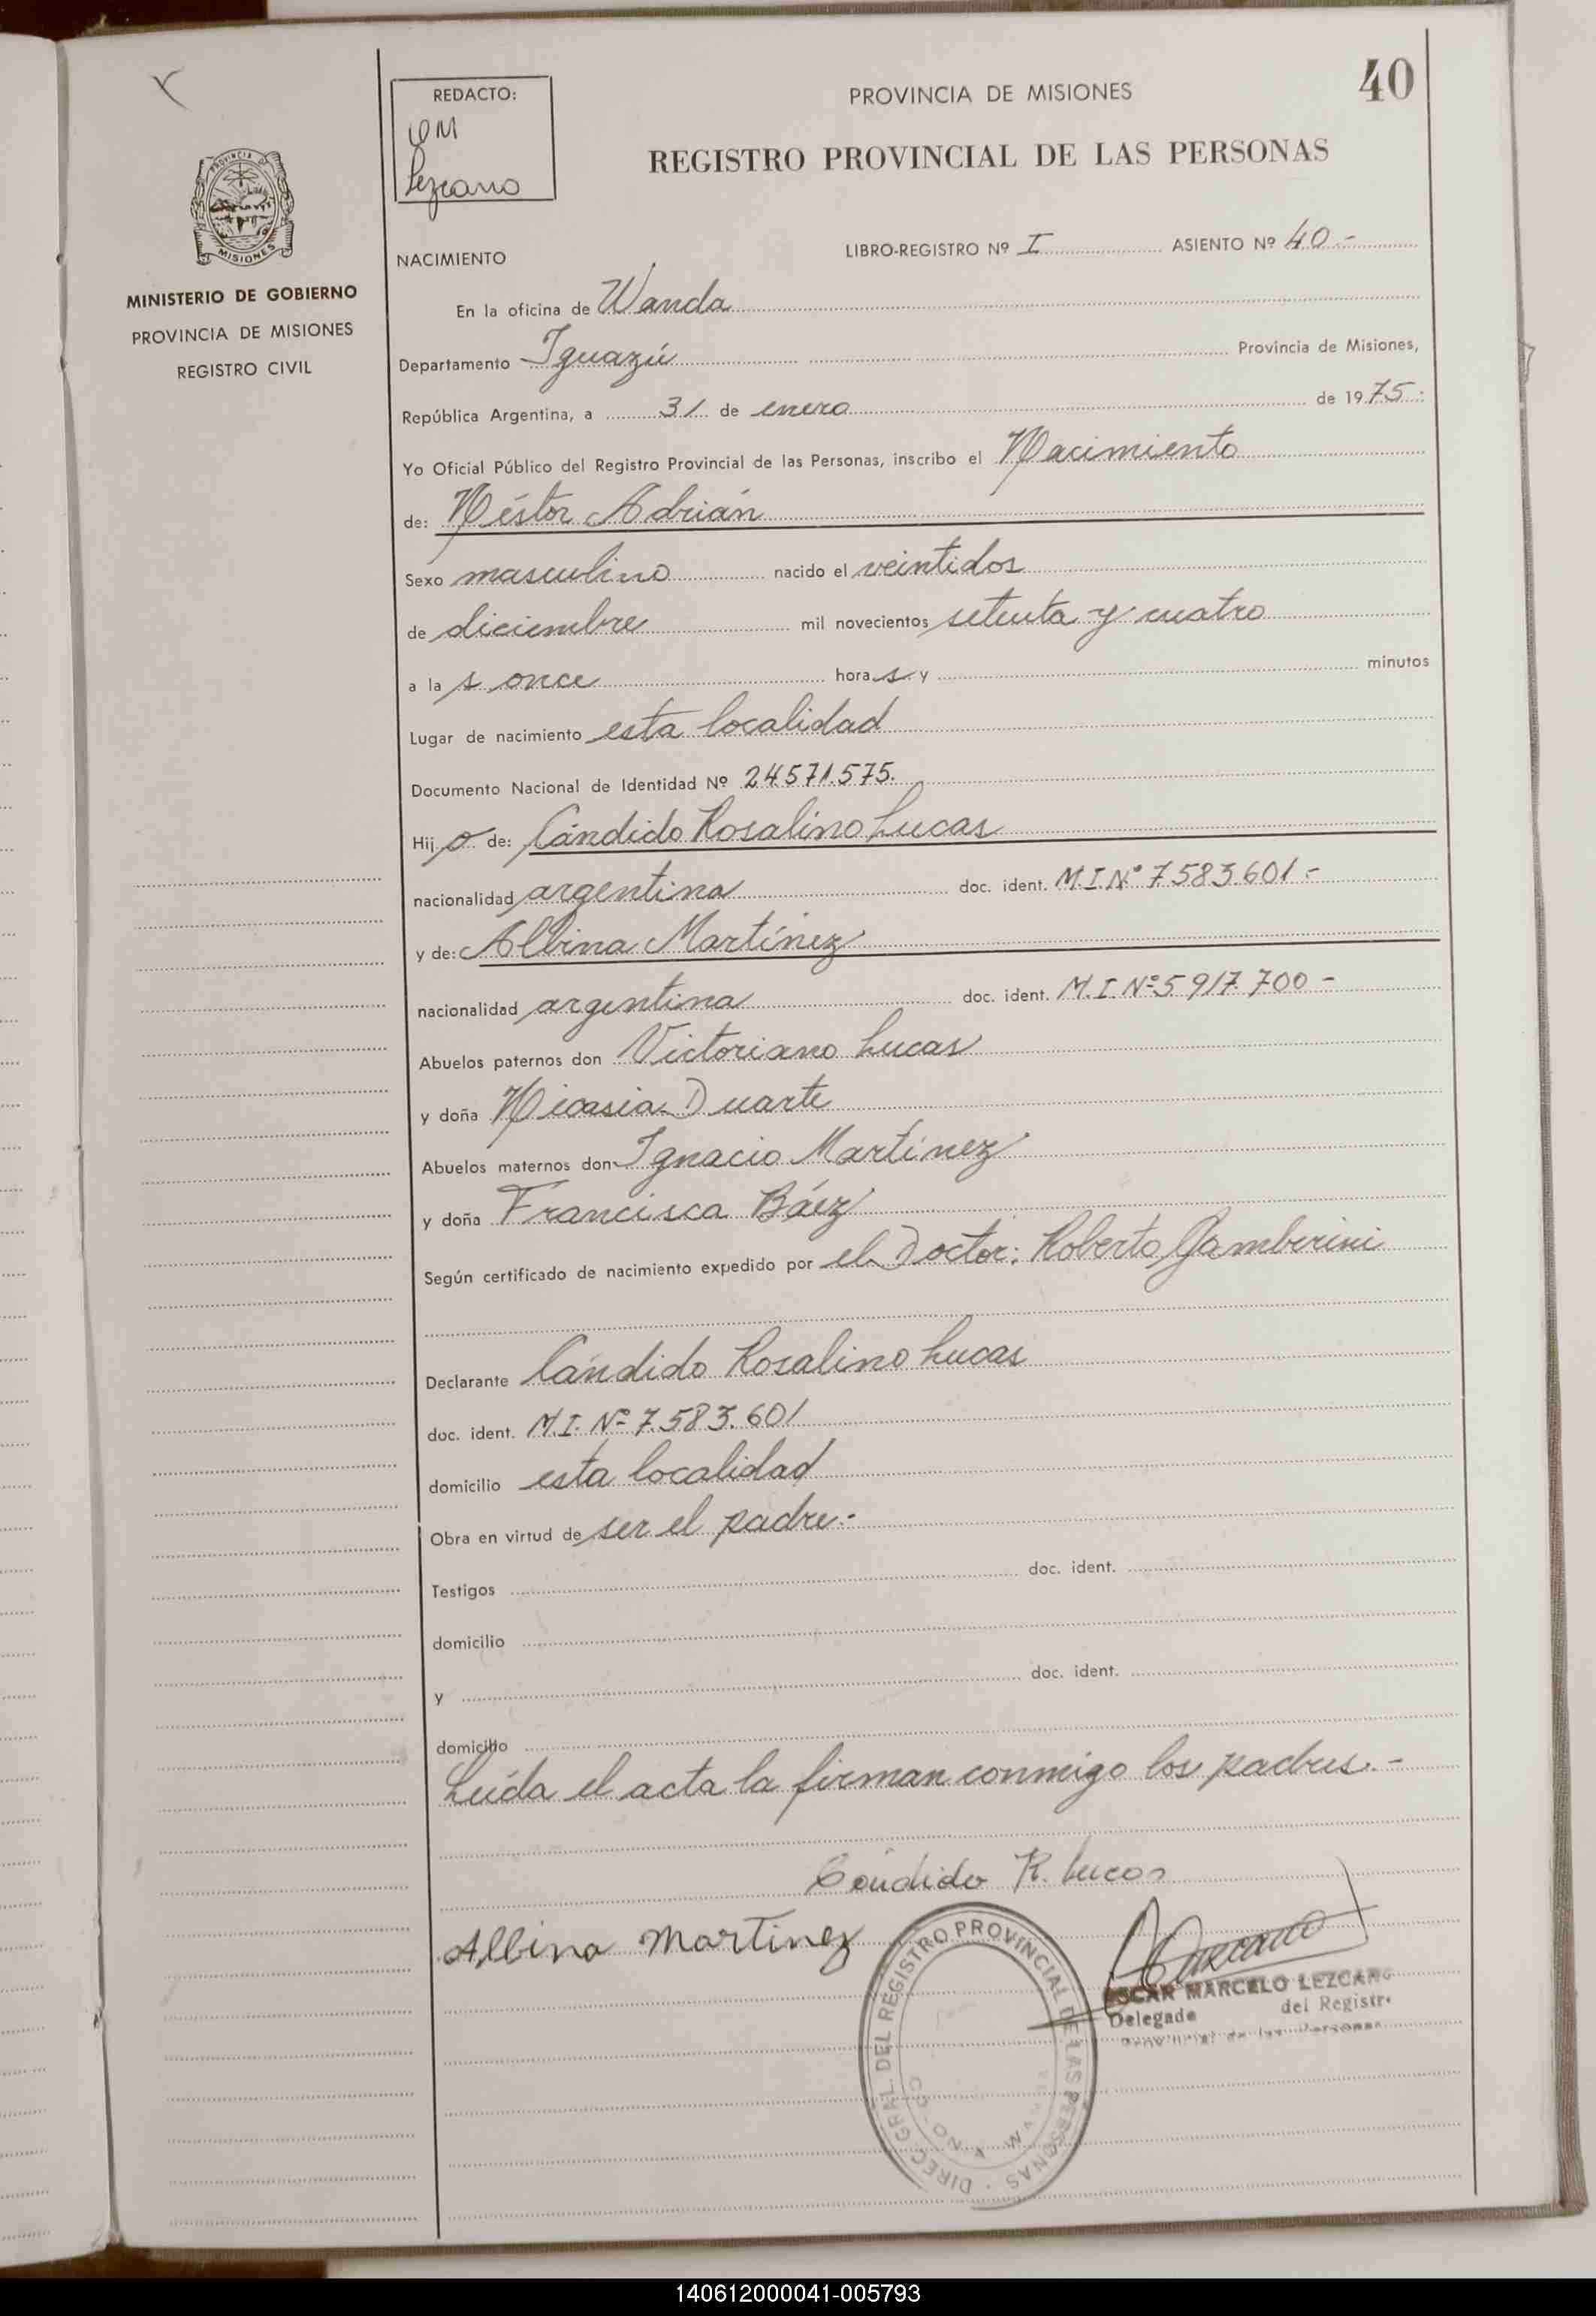 40
REDACTO:
OM
Lezcano
PROVINCIA DE MISIONES
REGISTRO PROVINCIAL DE LAS PERSONAS
PROVINCIA D
MISIONES
MINISTERIO DE GOBIERNO
PROVINCIA DE MISIONES
REGISTRO CIVIL
NACIMIENTO
LIBRO-REGISTRO Nº I ASIENTO Nº 40-
En la oficina de Wanda
Departamento Iguazú Provincia de Misiones,
República Argentina, a 31 de enero de 1975.
Yo Oficial Público del Registro Provincial de las Personas, inscribo el Nacimiento
de: Néstor Adrián
Sexo masculino nacido el veintidos
de diciembre mil novecientos setenta y cuatro
a las once horas y minutos
Lugar de nacimiento esta localidad
Documento Nacional de Identidad Nº 24.571.575.
Hijo de: Cándido Rosalino Lucas
nacionalidad argentina doc. ident. M.I.Nº 7.583.601-
y de: Albina Martínez
nacionalidad argentina doc. ident. M.I.Nº 5.917.700-
Abuelos paternos don Victoriano Lucas
y doña Nicasia Duarte
Abuelos maternos don Ignacio Martínez
y doña Francisca Báez
Según certificado de nacimiento expedido por el Doctor: Roberto Gamberini
Declarante Cándido Rosalino Lucas
doc. ident. M.I. Nº 7.583.601
domicilio esta localidad
Obra en virtud de ser el padre.-
Testigos doc. ident.
domicilio
y doc. ident.
domicilio
Leída el acta la firman conmigo los padres.-
Cándido R. Lucas
Albina Martinez
DIREC. GRAL. DEL REGISTRO PROVINCIAL DE LAS PERSONAS
OSCAR MARCELO LEZCANO
Delegado del Registro
Provincial de las Personas
140612000041-005793